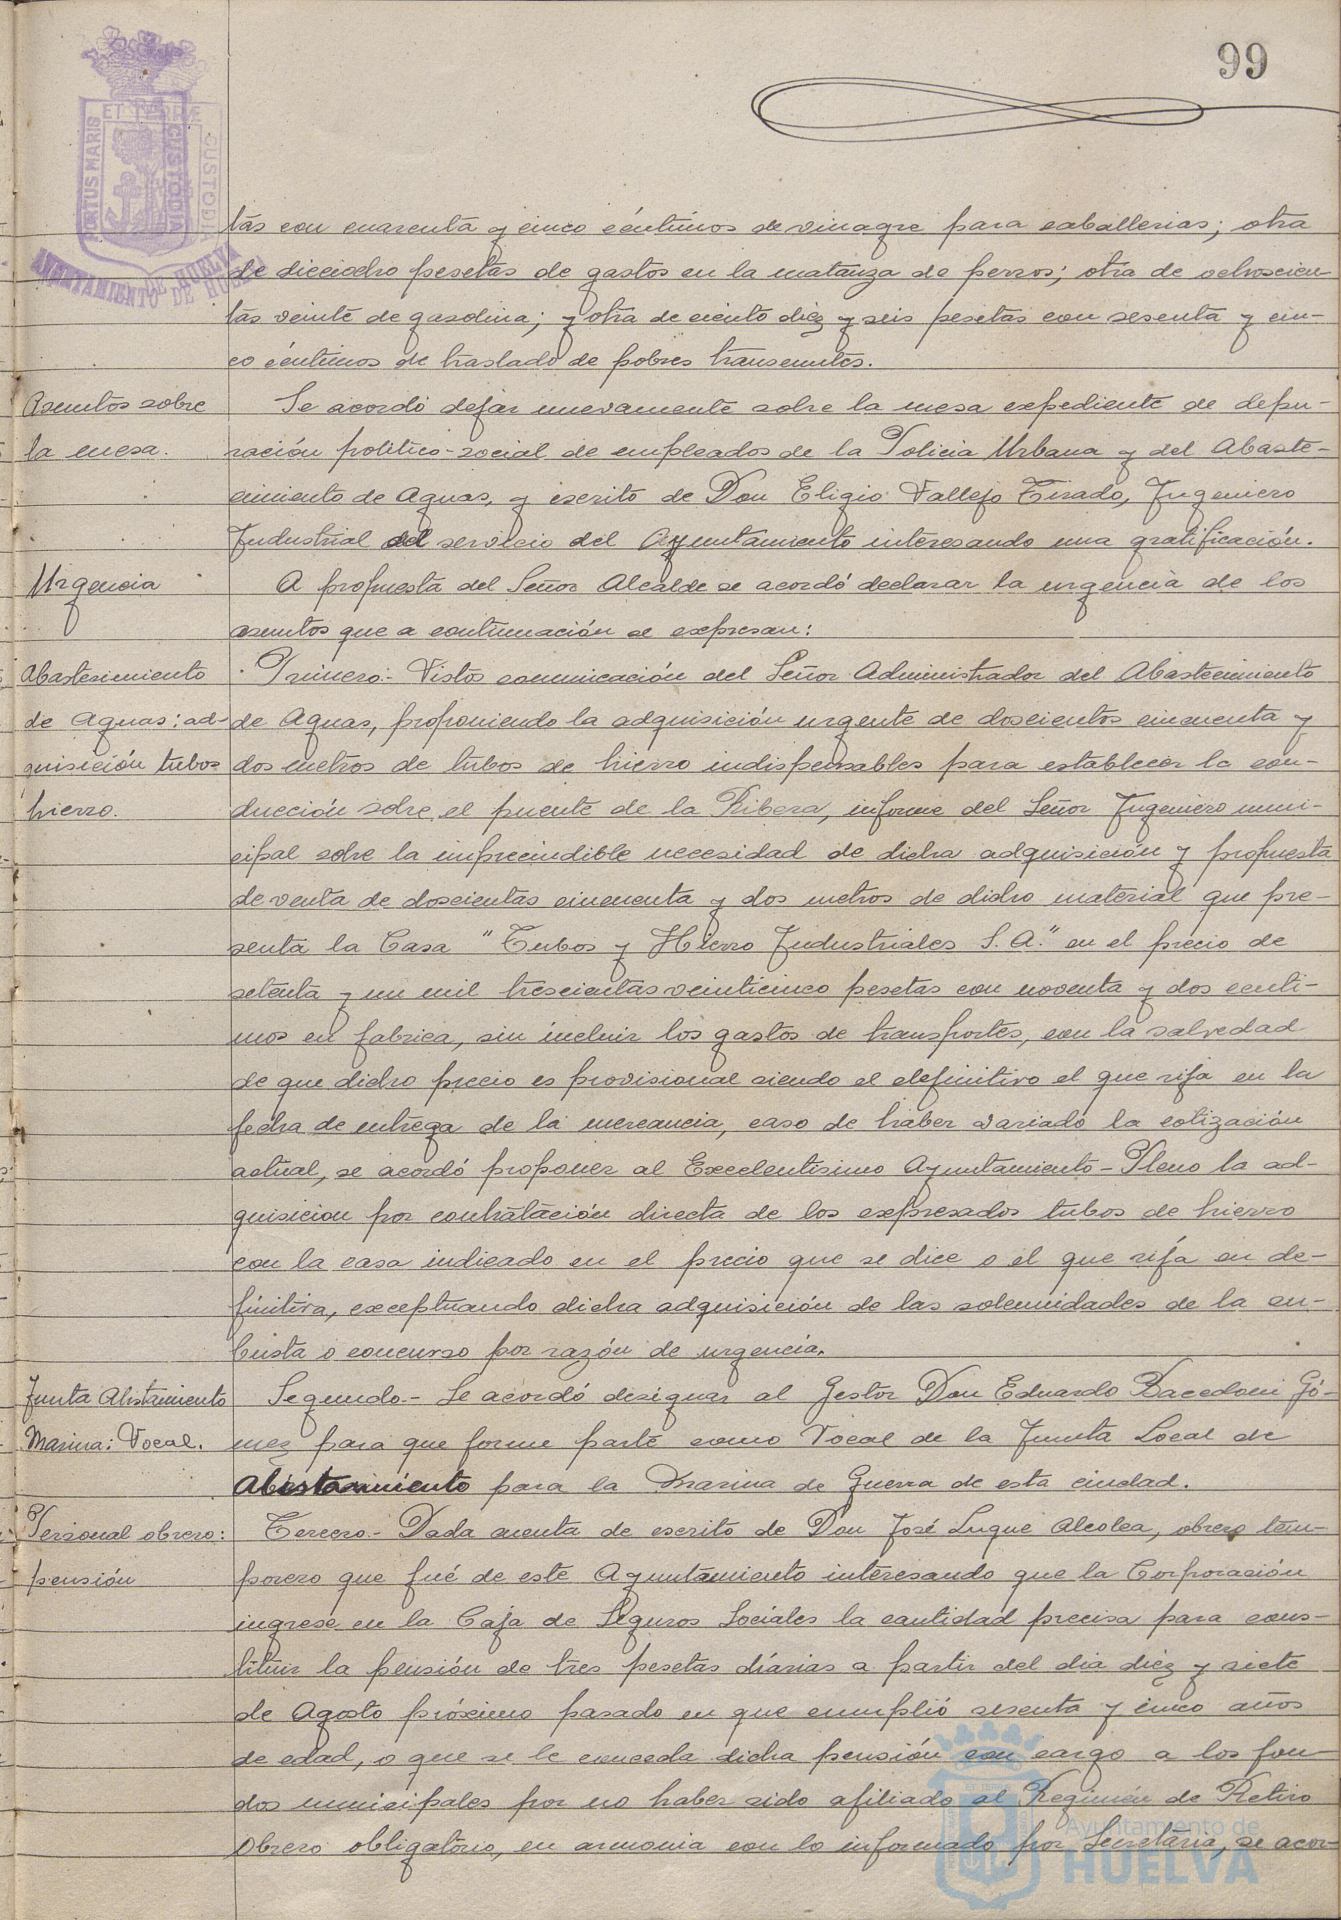 99
ET TERRÆ
PORTUS MARIS
CUSTODIA
AYUNTAMIENTO DE HUELVA
tas con cuarenta y cinco céntimos de vinagre para caballerias; otra
de dieciocho pesetas de gastos en la matanza de perros; otra de ochocien-
tas veinte de gasolina; y otra de ciento diez y seis pesetas con sesenta y cin-
co céntimos de traslado de pobres transeuntes.
Asuntos sobre
la mesa.
Se acordó dejar nuevamente sobre la mesa expediente de depu-
ración politico-social de empleados de la Policia Urbana y del Abaste-
cimiento de Aguas, y escrito de Don Eligio Vallejo Tirado, Ingeniero
Industrial del servicio del Ayuntamiento interesando una gratificación.
Urgencia
A propuesta del Señor Alcalde se acordó declarar la urgencia de los
asuntos que a continuación se expresan:
Abastecimiento
de Aguas: ad-
quisición tubos
hierro.
Primero.- Vistos comunicación del Señor Administrador del Abastecimiento
de Aguas, proponiendo la adquisición urgente de doscientos cincuenta y
dos metros de tubos de hierro indispensables para establecer la con-
ducción sobre el puente de la Ribera, informe del Señor Ingeniero muni-
cipal sobre la imprecindible necesidad de dicha adquisición y propuesta
de venta de doscientas cincuenta y dos metros de dicho material que pre-
senta la Casa "Tubos y Hierro Industriales S.A." en el precio de
setenta y un mil trescientas veinticinco pesetas con noventa y dos centi-
mos en fabrica, sin incluir los gastos de transportes, con la salvedad
de que dicho precio es provisional siendo el definitivo el que rija en la
fecha de entrega de la mercancia, caso de haber variado la cotización
actual, se acordó proponer al Excelentisimo Ayuntamiento-Pleno la ad-
quisicion por contratación directa de los expresados tubos de hierro
con la casa indicado en el precio que se dice o el que rija en de-
finitiva, exceptuando dicha adquisición de las solemnidades de la su-
basta o concurso por razón de urgencia.
Junta Alistamiento
Marina: Vocal.
Segundo.- Se acordó designar al Gestor Don Eduardo Bacedoni Gó-
mez para que forme parte como Vocal de la Junta Local de
Alistamiento para la Marina de Guerra de esta ciudad.
Personal obrero:
pensión
Tercero.- Dada cuenta de escrito de Don José Luque Alcolea, obrero tem-
porero que fué de este Ayuntamiento interesando que la Corporación
ingrese en la Caja de Seguros Sociales la cantidad precisa para cons-
tituir la pensión de tres pesetas diarias a partir del dia diez y siete
de Agosto próximo pasado en que cumplió sesenta y cinco años
de edad, o que se le conceda dicha pensión con cargo a los fon-
dos municipales por no haber sido afiliado al Regimen de Retiro
Obrero obligatorio, en armonia con lo informado por Secretaria, se acor-
Ayuntamiento de
HUELVA